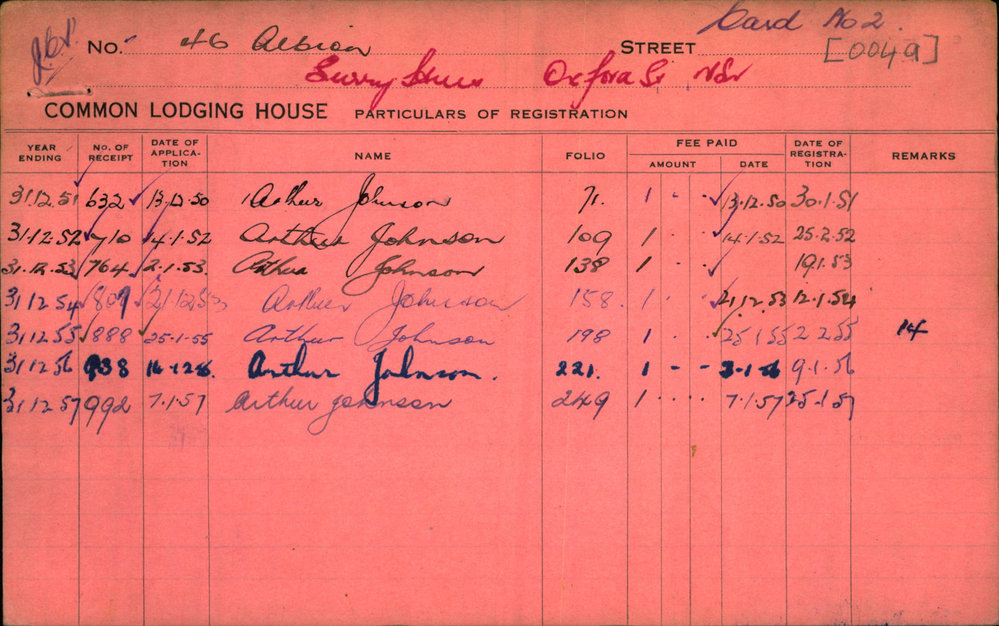 Card No 2.
No. 46 Albion STREET [0049]
Surry Hills Oxford St
COMMON LODGING HOUSE PARTICULARS OF REGISTRATION
YEAR ENDING No. OF RECEIPT DATE OF APPLICA-TION NAME FOLIO FEE PAID AMOUNT DATE DATE OF REGISTRA-TION REMARKS
31.12.51 632 13.12.50 Arthur Johnson 71. 1 . . 13.12.50 30.1.51
31.12.52 710 14.1.52 Arthur Johnson 109 1 . . 14.1.52 25.2.52
31.12.53 764 2.1.53 Arthur Johnson 138 1 . . 19.1.53
31.12.54 809 21.12.53 Arthur Johnson 158. 1 . . 21.12.53 12.1.54
31.12.55 888 25.1.55 Arthur Johnson 198 1 . . 25.1.55 2.2.55 14
31.12.56 938 Arthur Johnson. 221. 1 - - 9.1.56
31.12.57 992 7.1.57 Arthur Johnson 249 1 .... 7.1.57 25.1.57